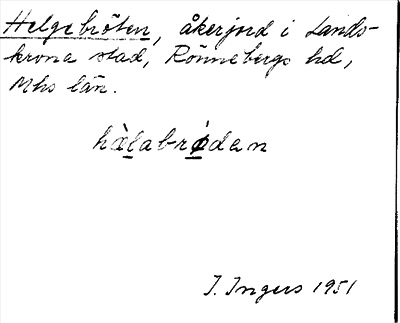 Helgebröten, åkerjord i Lands-
krona stad, Rönnebergs hd,
Mhs län.
hælabrødan
I. Ingers 1951